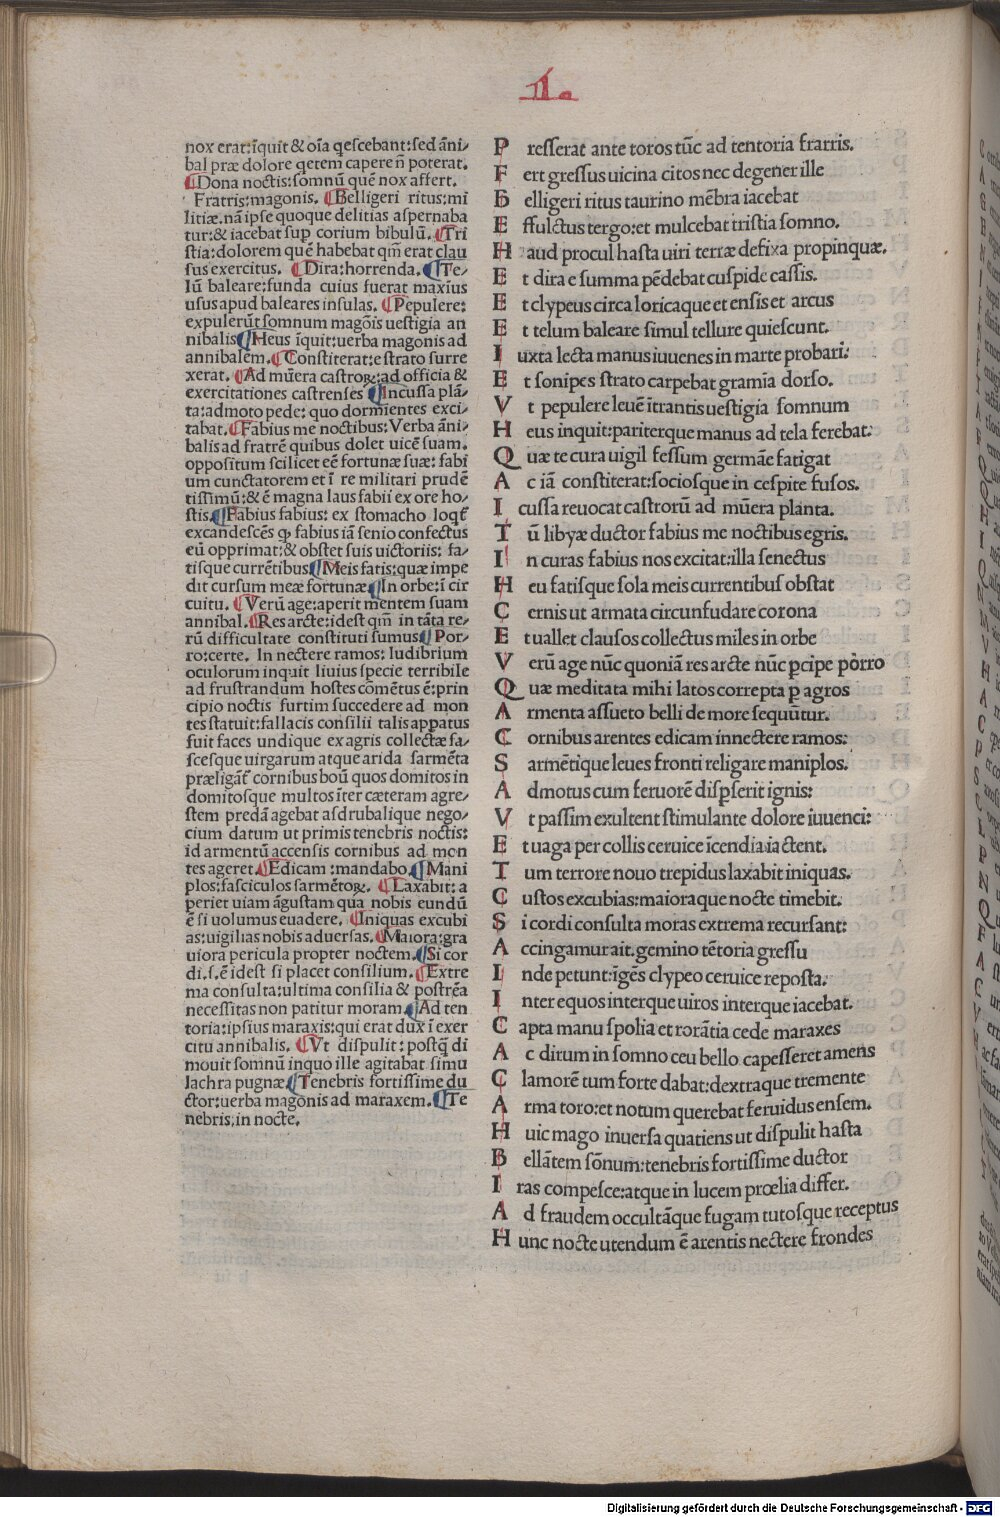 nox erat:īquit & oīa qescebant:sed āni/
bal præ dolore qetem capere n̄ poterat.
Dona noctis:somnū quē nox affert.
Fratris:magonis. Belligeri ritus:mi
litiæ.nā ipse quoque delitias aspernaba
tur:& iacebat sup corium bibulū. Tri
stia:dolorem quē habebat qm̄ erat clau
sus exercitus. Dira:horrenda. Te/
lū baleare:funda cuius fuerat maxīus
usus apud baleares insulas. Pepulere:
expulerūt somnum magōis uestigia an
nibalis Heus īquit:uerba magonis ad
annibalem. Constiterat:e strato surre
xerat. Ad mūera castroꝝ:ad officia &
exercitationes castrenses Incussa plā/
ta:admoto pede: quo dormientes exci/
tabat. Fabius me noctibus: Verba āni/
balis ad fratrē quibus dolet uicē suam.
oppositum scilicet eē fortunæ suæ: fabi
um cunctatorem et ī re militari prudē
tissimū:& ē magna laus fabii ex ore ho/
stis. Fabius fabius: ex stomacho loqt̄
excandescēs ꝙ fabius iā senio confectus
eū opprimat:& obstet suis uictoriis: fa/
tisque currētibus Meis fatis:quæ impe
dit cursum meæ fortunæ In orbe:ī cir
cuitu. Verū age:aperit mentem suam
annibal. Res arcte:idest qm̄ in tāta re/
rū difficultate constituti sumus Por/
ro:certe. In nectere ramos: ludibrium
oculorum inquit liuius specie terribile
ad frustrandum hostes cōmētus ē:prin
cipio noctis furtim succedere ad mon
tes statuit:fallacis consilii talis apparatus
fuit faces undique ex agris collectæ fa/
scesque uirgarum atque arida sarmēta
præligāt̄ cornibus boū quos domitos in
domitosque multos īter cæteram agre/
stem predā agebat asdrubalique nego/
cium datum ut primis tenebris noctis:
id armentū accensis cornibus ad mon
tes ageret. Edicam :mandabo. Mani
plos:fasciculos sarmētoꝝ. Laxabit: a
periet uiam āgustam qua nobis eundū
ē si uolumus euadere. Iniquas excubi
as:uigilias nobis aduersas. Maiora:gra
uiora pericula propter noctem. Si cor
di.s.ē idest si placet consilium. Extre
ma consulta:ultima consilia & postrēa
necessitas non patitur moram. Ad ten
toria:ipsius maraxis:qui erat dux ī exer
citu annibalis. Vt dispulit: postq̄ di
mouit somnū inquo ille agitabat simu
lachra pugnæ Tenebris fortissime du
ctor:uerba magonis ad maraxem. Te
nebris:in nocte.
1.
P resserat ante toros tūc ad tentoria frarris.
F ert gressus uicina citos nec degener ille
B elligeri ritus taurino mēbra iacebat
E ffulctus tergo:et mulcebat tristia somno.
H aud procul hasta uiri terræ defixa propinquæ.
E t dira e summa pēdebat cuspide cassis.
E t clypeus circa loricaque et ensis et arcus
E t telum baleare simul tellure quiescunt.
I uxta lecta manus iuuenes in marte probari:
E t sonipes strato carpebat gramīa dorso.
V t pepulere leuē ītrantis uestigia somnum
H eus inquit:pariterque manus ad tela ferebat:
Q uæ te cura uigil fessum germāe fatigat
A c iā constiterat:sociosque in cespite fusos.
I cussa reuocat castrorū ad mūera planta.
T ū libyæ ductor fabius me noctibus egris.
I n curas fabius nos excitat:illa senectus
H eu fatisque sola meis currentibus obstat
C ernis ut armata circunfudare corona
E t uallet clausos collectus miles in orbe
V erū age nūc quoniā res arcte nūc ꝑcipe pòrro
Q uæ meditata mihi latos correpta ꝑ agros
A rmenta assueto belli de more sequūtur.
C ornibus arentes edicam innectere ramos:
S armētique leues fronti religare maniplos.
A dmotus cum feruorē disꝑserit ignis:
V t passim exultent stimulante dolore iuuenci:
E t uaga per collis ceruice īcendia iactent.
T um terrore nouo trepidus laxabit iniquas.
C ustos excubias:maioraque nocte timebit.
S i cordi consulta moras extrema recursant:
A ccingamur ait.gemino tētoria gressu
I nde petunt:igēs clypeo ceruice reposta.
I nter equos interque uiros interque iacebat.
C apta manu spolia et rorātia cede maraxes
A c dirum in somno ceu bello capesseret amens
C lamorē tum forte dabat:dextraque tremente
A rma toro:et notum querebat feruidus ensem.
H uic mago inuersa quatiens ut dispulit hasta
B ellātem sōnum:tenebris fortissime ductor
I ras compesce:atque in lucem prœlia differ.
A d fraudem occultāque fugam tutosque receptus
H unc nocte utendum ē arentis nectere frondes
Digitalisierung gefördert durch die Deutsche Forschungsgemeinschaft - DFG